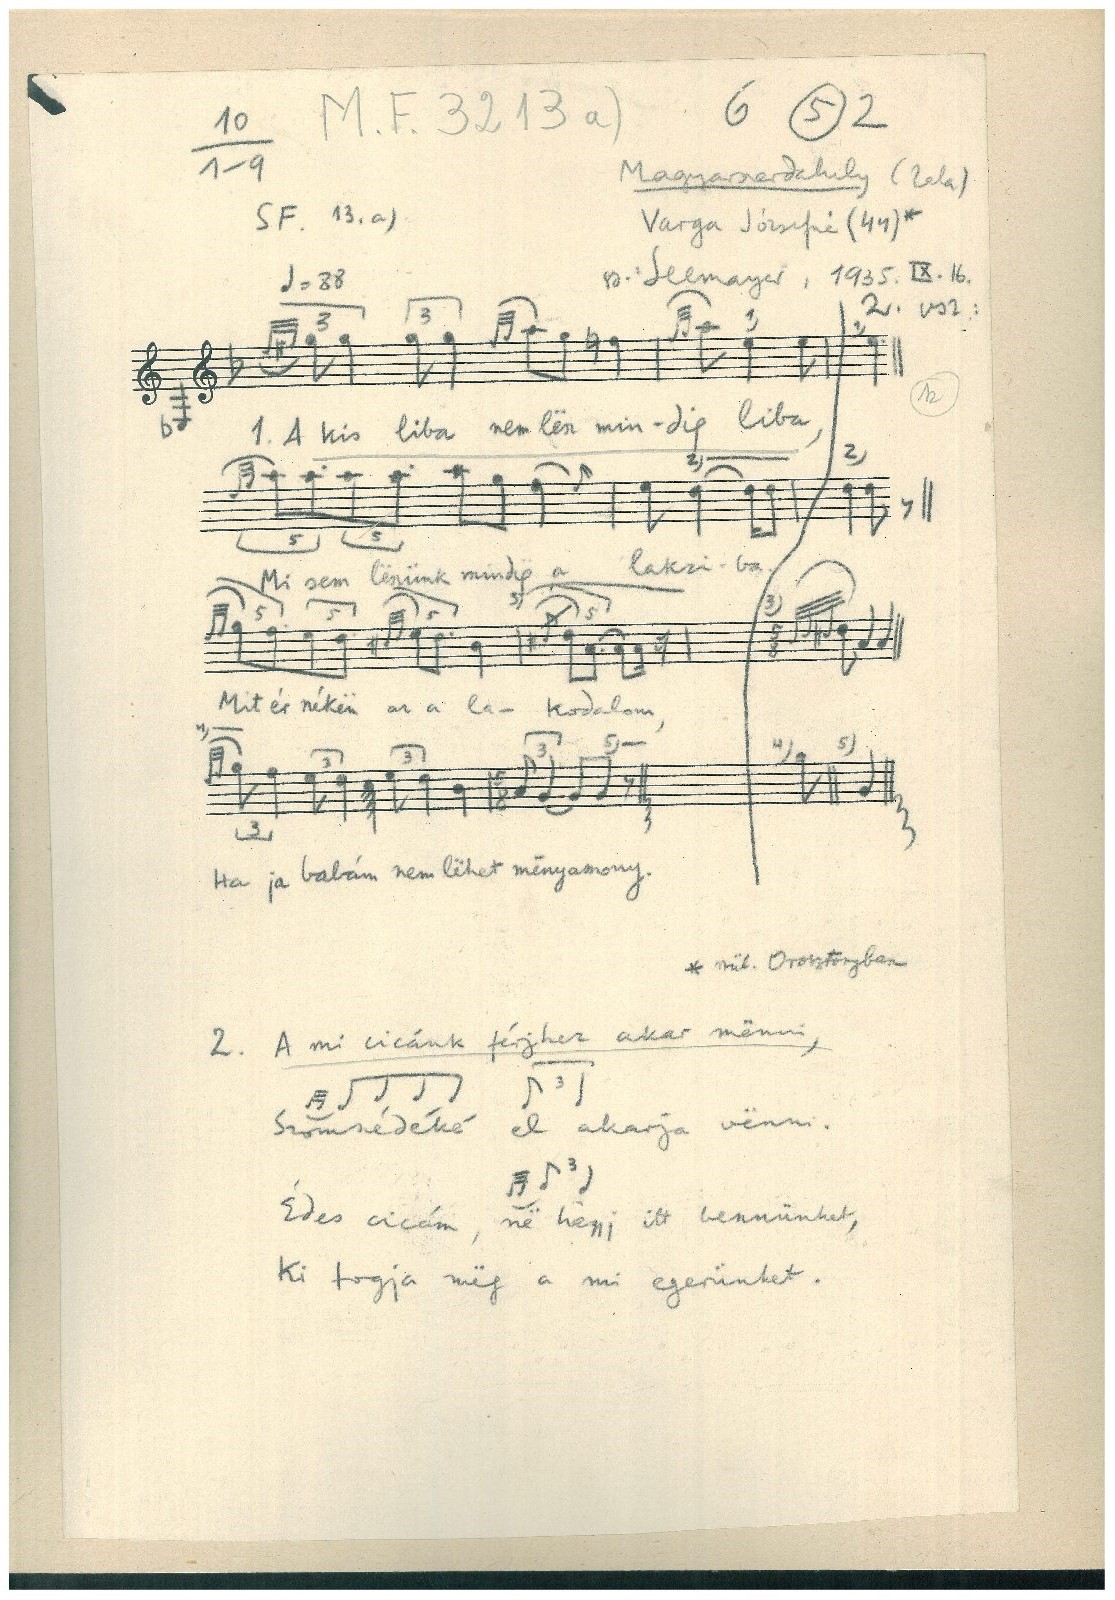 10
1-9
M.F. 3213 a)
6 (5) 2
Magyarszerdahely (Zala)
SF. 13. a)
Varga Józsefné (44)*
Seemayer, 1935. IX. 16.
♩=88
2. vsz:
1. A kis liba nem lësz min-dig liba,
Mi sem lëszünk mindig a lakzi-ba.
Mit ér nékëm az a la- kodalom,
Ha ja babám nem lëhet mënyasszony.
* szül. Orosztonyban
2. A mi cicánk férjhez akar mënni,
Szomszédéké el akarja vënni.
Édes cicám, në hagyj itt bennünket,
Ki fogja mëg a mi egerünket.